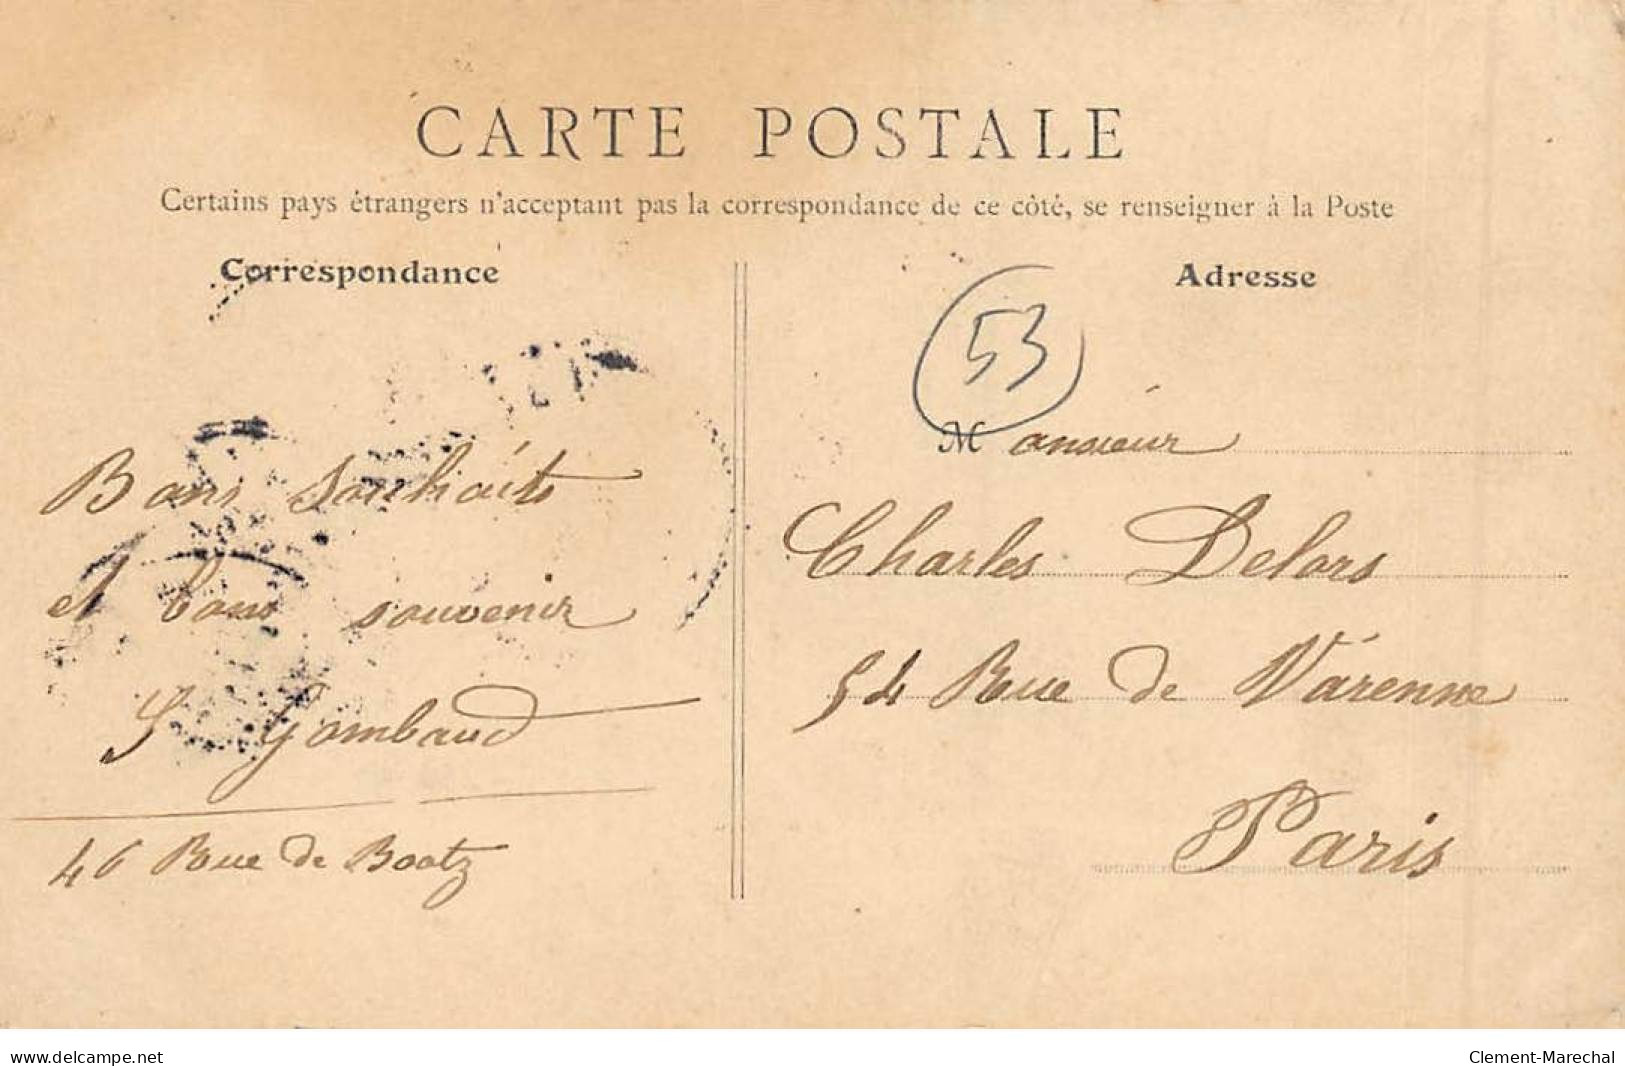 CARTE POSTALE
Certains pays étrangers n'acceptant pas la correspondance de ce côté, se renseigner à la Poste
Correspondance
Adresse
53
Bons souhaits
et bons souvenir
S Gombaud
46 Rue de Bootz
Monsieur
Charles Delors
54 Rue de Varenne
Paris
www.delcampe.net
Clement-Marechal